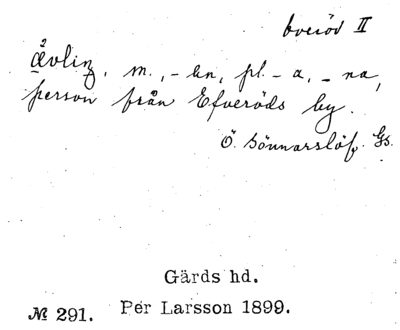 överöd II
ävling, m., -en, pl. -a, -na,
person från Efveröds by.
Ö. Sönnarslöf. Gs.
Gärds hd.
№ 291. Per Larsson 1899.